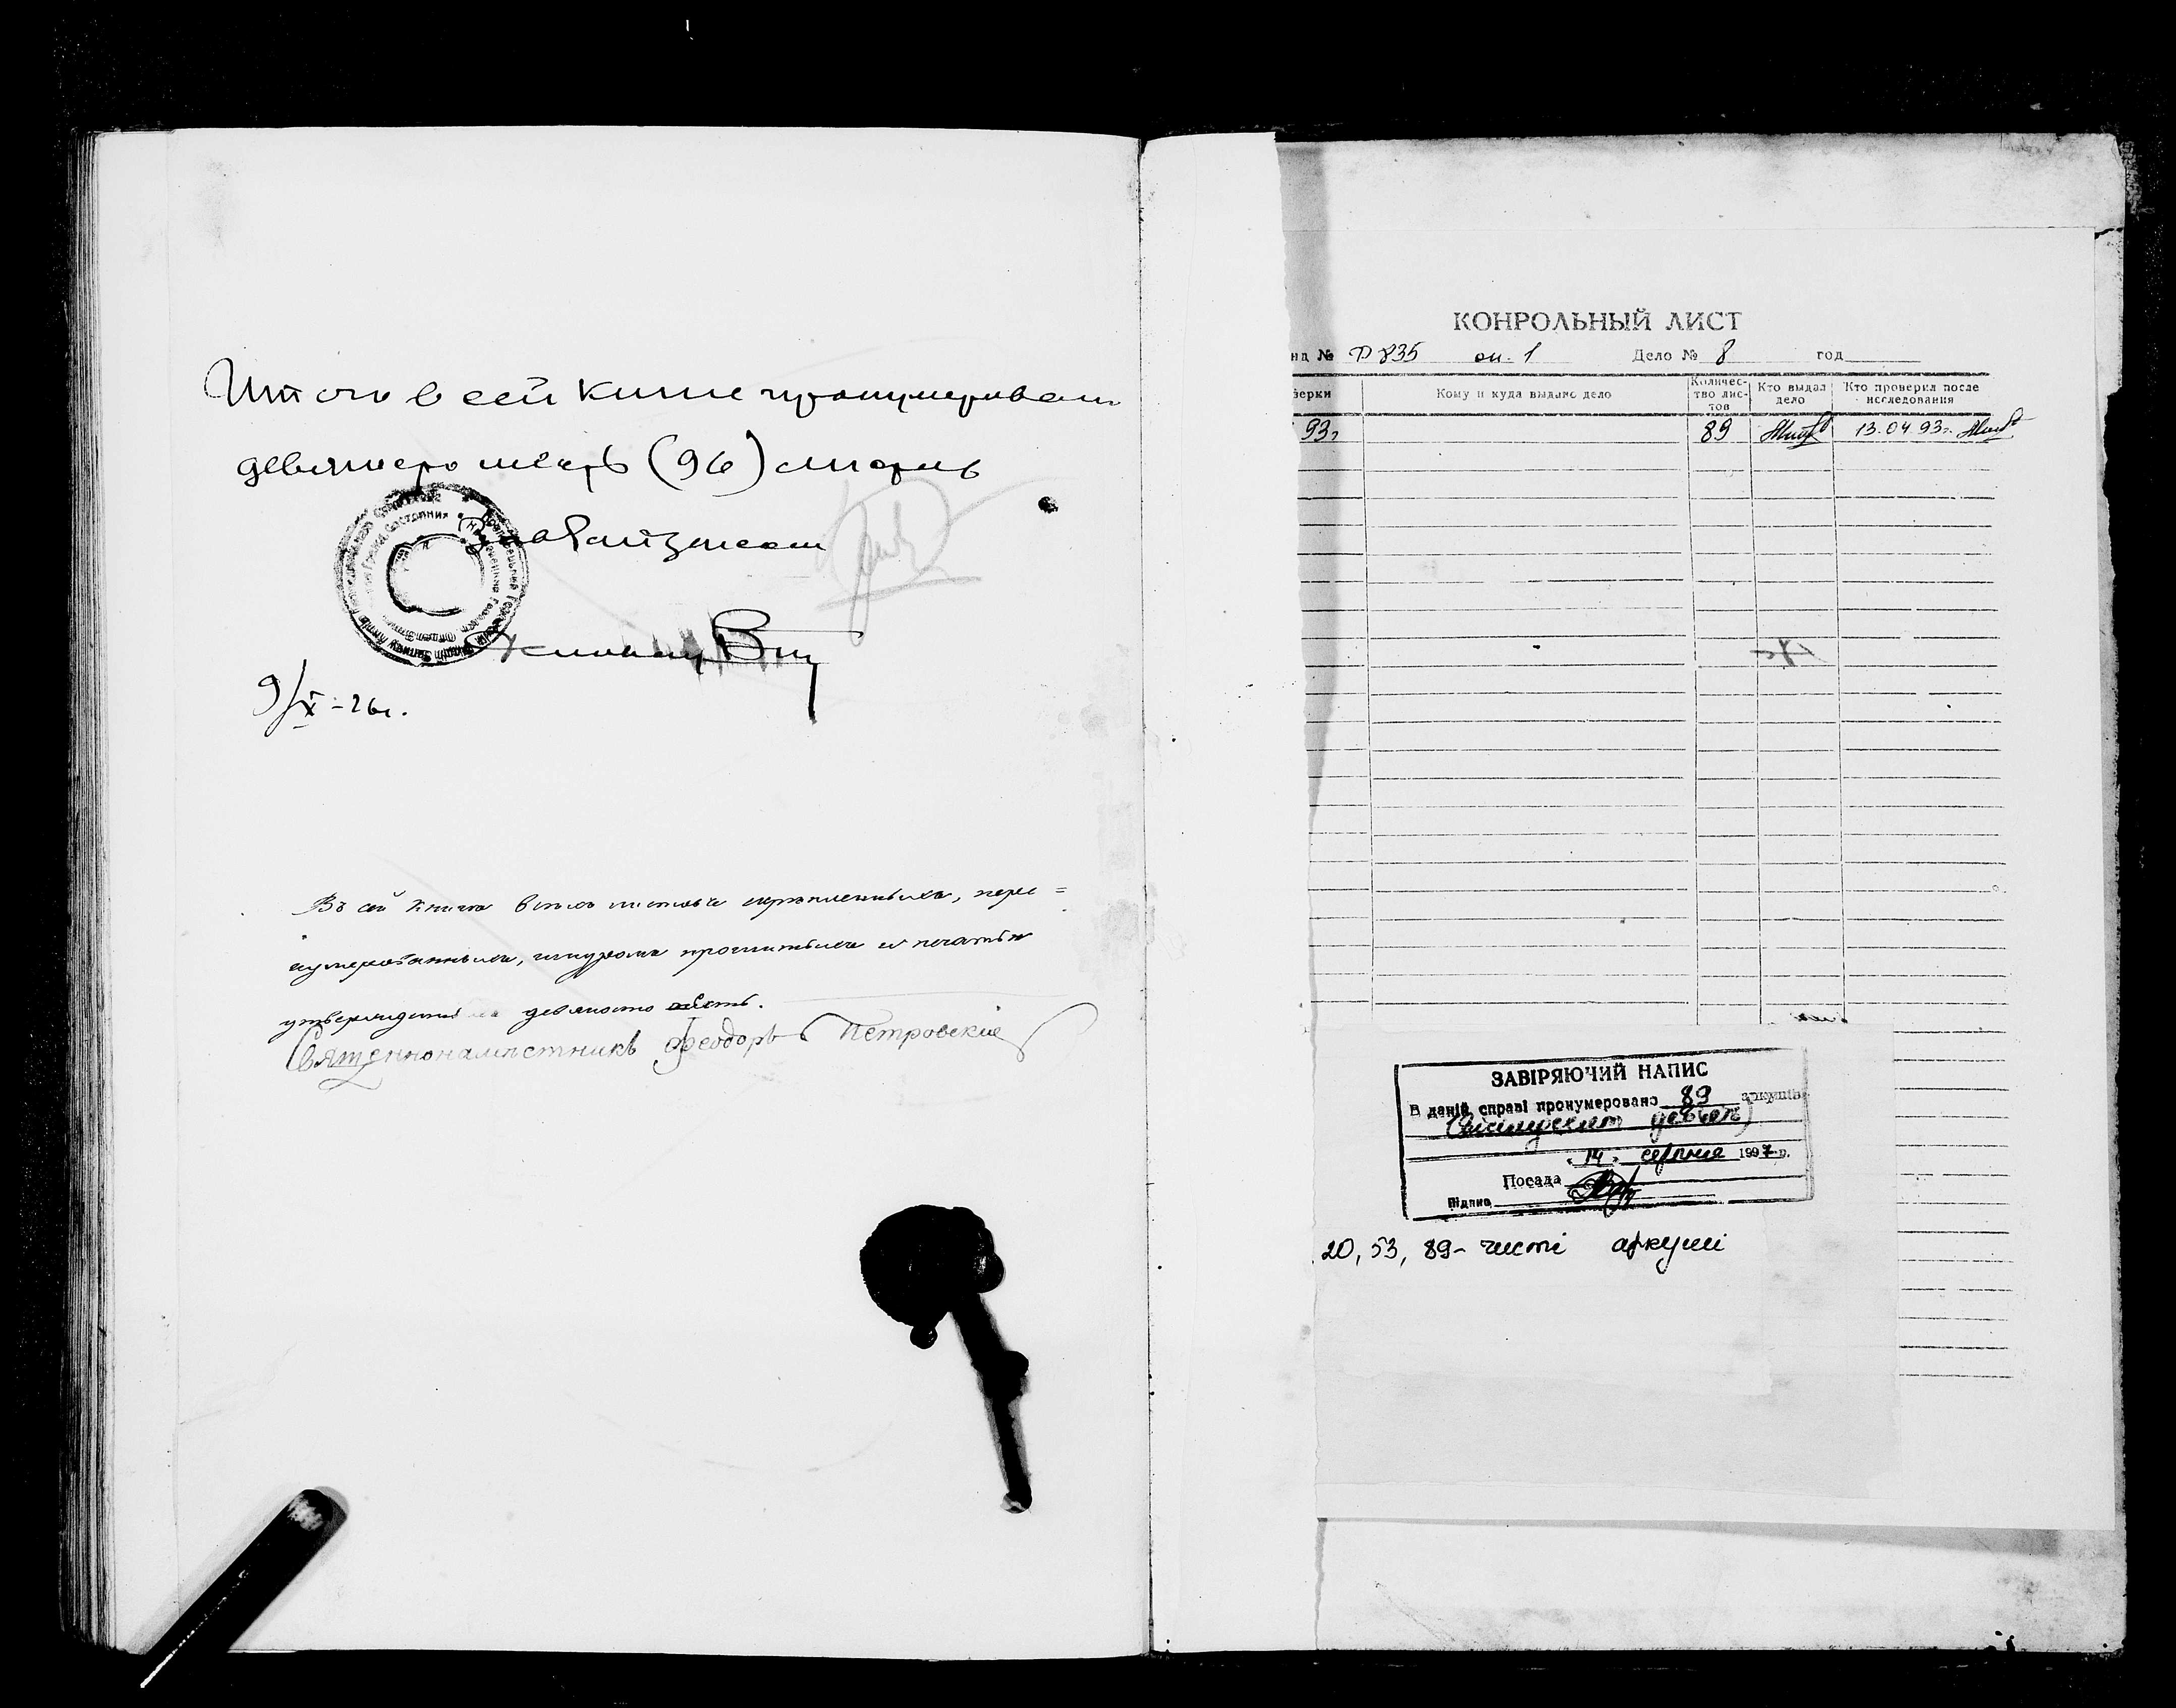 Итого в сей книге пронумеровано
девяносто шесть (96) листов
Зав
9/X - 26 г.
Въ сей книге всѣхъ листовъ скрѣпленныхъ, пере=
нумерованныхъ, шнуромъ прошитыхъ и печатью
утвержденныхъ девяносто шесть.
Священнонамѣстникъ Феодоръ Петровскій
КОНРОЛЬНЫЙ ЛИСТ
нд № Р 835 оп. 1 Дело № 8 год
верки Кому и куда выдано дело Количес-тво лис-тов Кто выдал дело Кто проверил после исследования
93 г 89 13.04.93 г.
ЗАВІРЯЮЧИЙ НАПИС
В даній справі пронумеровано 89 аркушів
(вісімдесят дев'ять)
"14" серпня 1997 р.
Посада
Підпис
20, 53, 89 - чисті аркуші